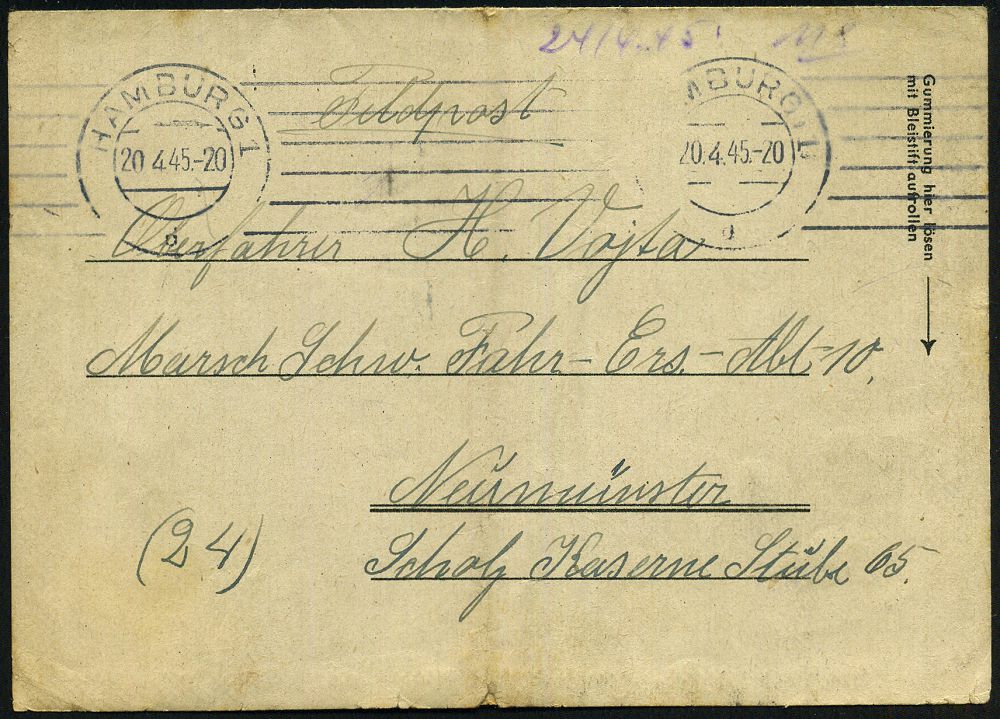 24/4.45.
HAMBURG 1
20.4.45.-20
MBURG 1
20.4.45.-20
Feldpost
Gummierung hier lösen
mit Bleistift aufrollen
Oberfahrer H. Vojta
Marsch Schw. Fahr-Ers.-Abt-10,
Neumünster
(24)
Scholz Kaserne Stube 65.